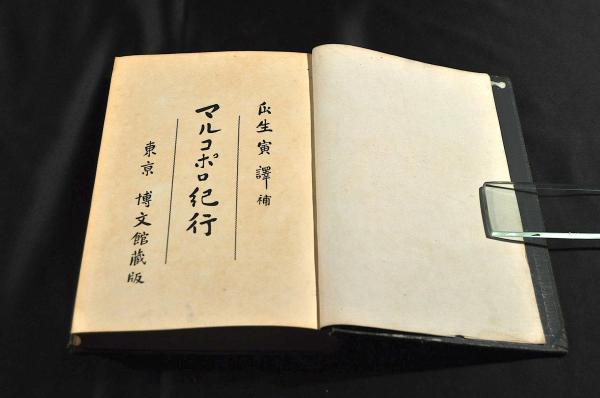 瓜生寅譯補
マルコポロ紀行
東京 博文館藏版